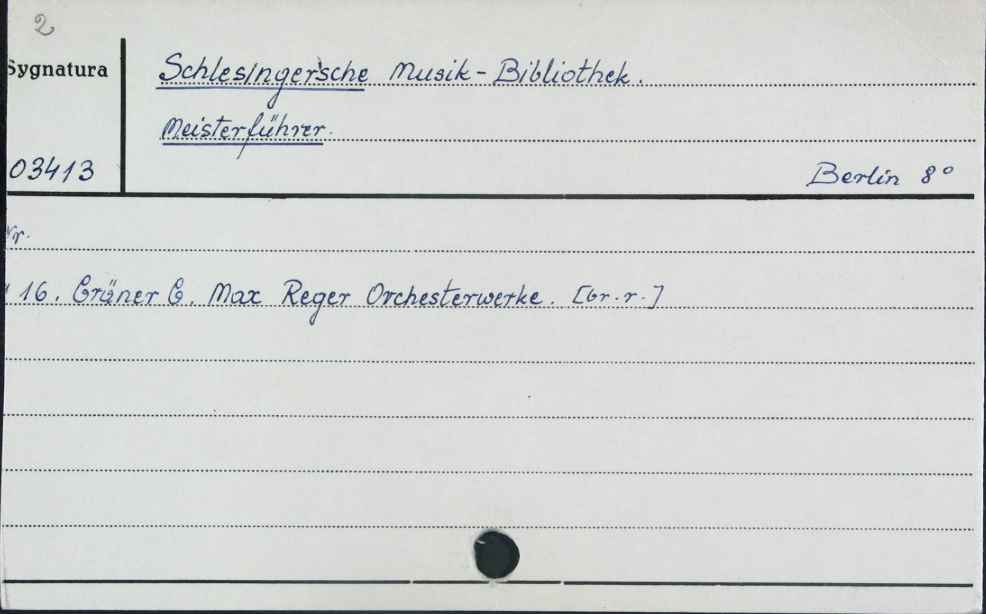 2
Sygnatura
Schlesinger'sche Musik-Bibliothek.
Meisterführer.
03413
Berlin 8°
Nr.
16. Gräner G. Max Reger Orchesterwerke. [br.r.]